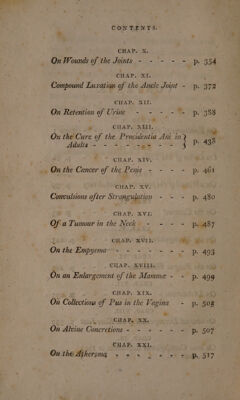 CONTENTS.
CHAP. X.
On Wounds of the Joints - - - - - p. 354
CHAP. XI.
Compound Luxation of the Ancle Joint - p. 372
CHAP. XII.
On Retention of Urine - - - - p. 388
CHAP. XIII.
On the Cure of the Procidentia Ani in }
Adults - - - - - - - - } p. 438
CHAP. XIV.
On the Cancer of the Penis - - - - p. 461
CHAP. XV.
Convulsions after Strangulation - - - p. 480
CHAP. XVI.
Of a Tumour in the Neck - - - - p. 487
CHAP. XVII.
On the Empyema - - - - - - p. 493
CHAP. XVIII.
On an Enlargement of the Mammæ - - p. 499
CHAP. XIX.
On Collections of Pus in the Vagina - p. 503
CHAP. XX.
On Alvine Concretions - - - - - - p. 507
CHAP. XXI.
On the Atheroma - - - - - - p. 517